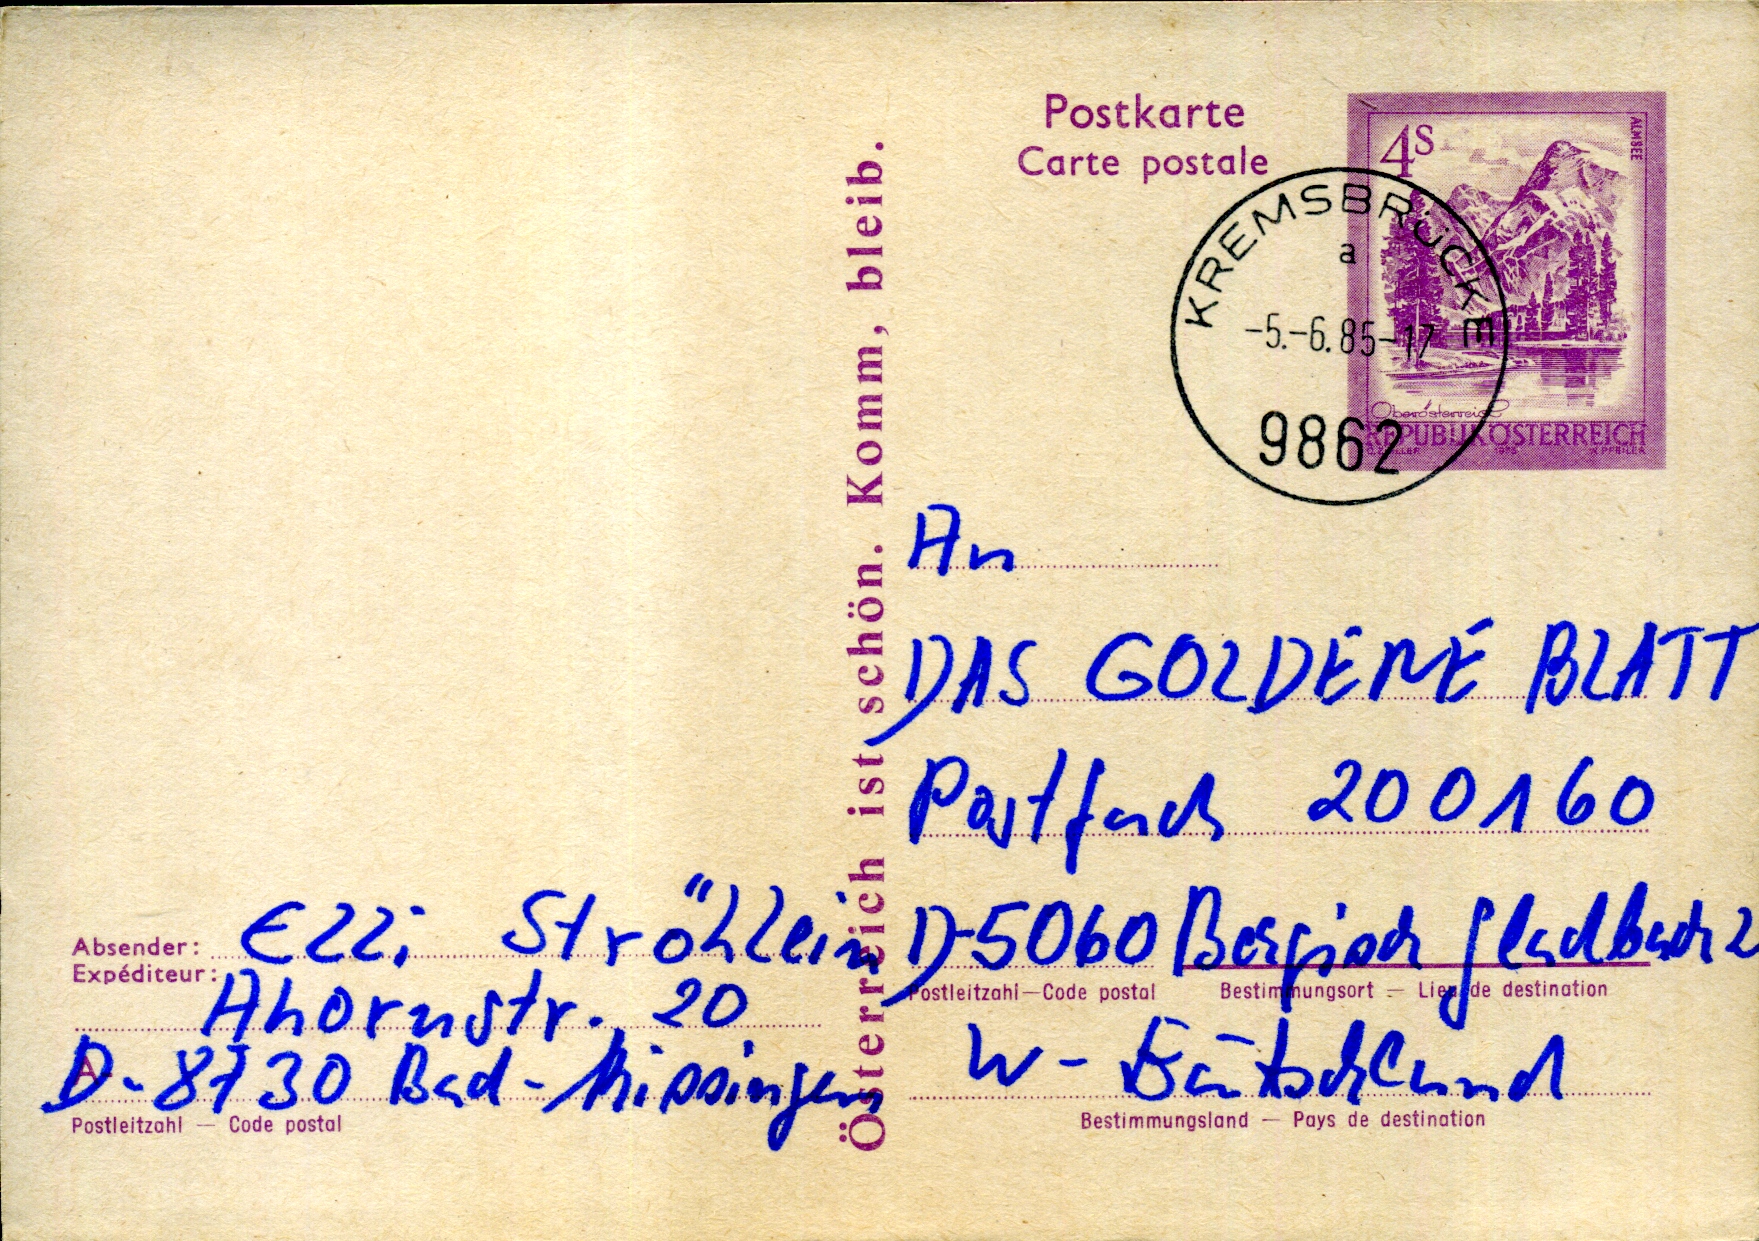 Postkarte
Carte postale
4 S
ALMSEE
Oberösterreich
REPUBLIK ÖSTERREICH
KREMSBRÜCKE
a
-5.-6.85-17
9862
Österreich ist schön. Komm, bleib.
An
DAS GOLDENE BLATT
Postfach 200160
D-5060 Bergisch Gladbach 2
Postleitzahl — Code postal
Bestimmungsort — Lieu de destination
W - Deutschland
Bestimmungsland — Pays de destination
Absender: Elli Ströhlein
Expéditeur:
Ahornstr. 20
A-
D-8730 Bad-Kissingen
Postleitzahl — Code postal